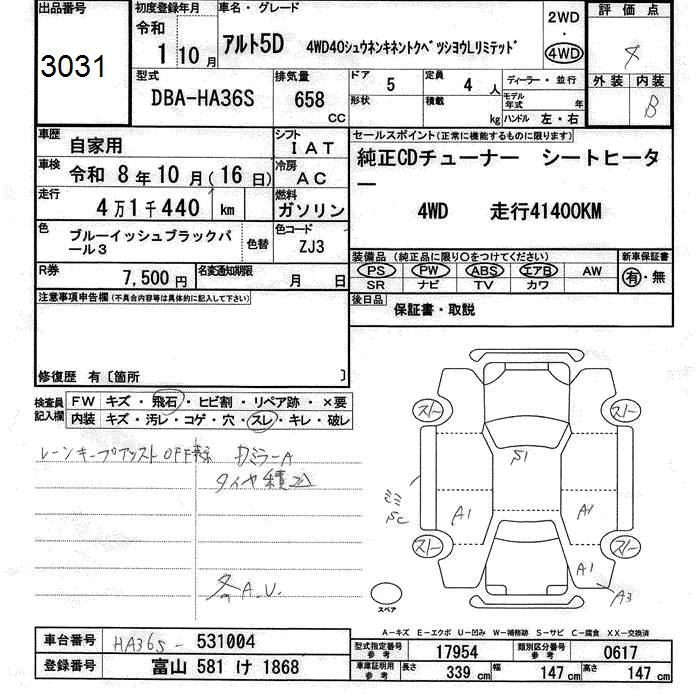 出品番号
3031
初度登録年月
令和
1 10月
車名・グレード
アルト5D 4WD40シュウネンキネントクベツシヨウLリミテッド
2WD
・
4WD
評価点
4
外装 内装
B
型式
DBA-HA36S
排気量
658
CC
ドア
5
定員
4 人
形状
積載
kg
ディーラー・並行
モデル年式 年
ハンドル 左・右
車歴
自家用
シフト
IAT
車検
令和 8年10月(16日)
冷房
AC
走行
4万1千440 km
燃料
ガソリン
色
ブルーイッシュブラックパール3
色替
色コード
ZJ3
R券
7,500円
名変通知期限
月 日
セールスポイント(正常に機能するものに限ります)
純正CDチューナー シートヒータ
ー
4WD 走行41400KM
装備品 (純正品に限り○をつけてください)
PS PW ABS エアB AW
SR ナビ TV カワ
新車保証書
有・無
後日品
保証書・取説
注意事項申告欄(不具合内容等は具体的に記入して下さい)
修復歴 有〔箇所 〕
検査員記入欄
FW キズ・飛石・ヒビ割・リペア跡・×要
内装 キズ・汚レ・コゲ・穴・スレ・キレ・破レ
レーンキープアシストOFF表示
カミラーA
タイヤ積込
各A.U.
スト
スト
S1
ミミ
SC
A1
A1
スト
スト
A1
A3
スペア
A-キズ E-エクボ U-凹み W-補修跡 S-サビ C-腐食 XX-交換済
車台番号
HA36S-531004
登録番号
富山 581 け 1868
型式指定番号
参考
17954
類別区分番号
参考
0617
車庫証明用
参考
長さ
339 cm
幅
147 cm
高さ
147 cm